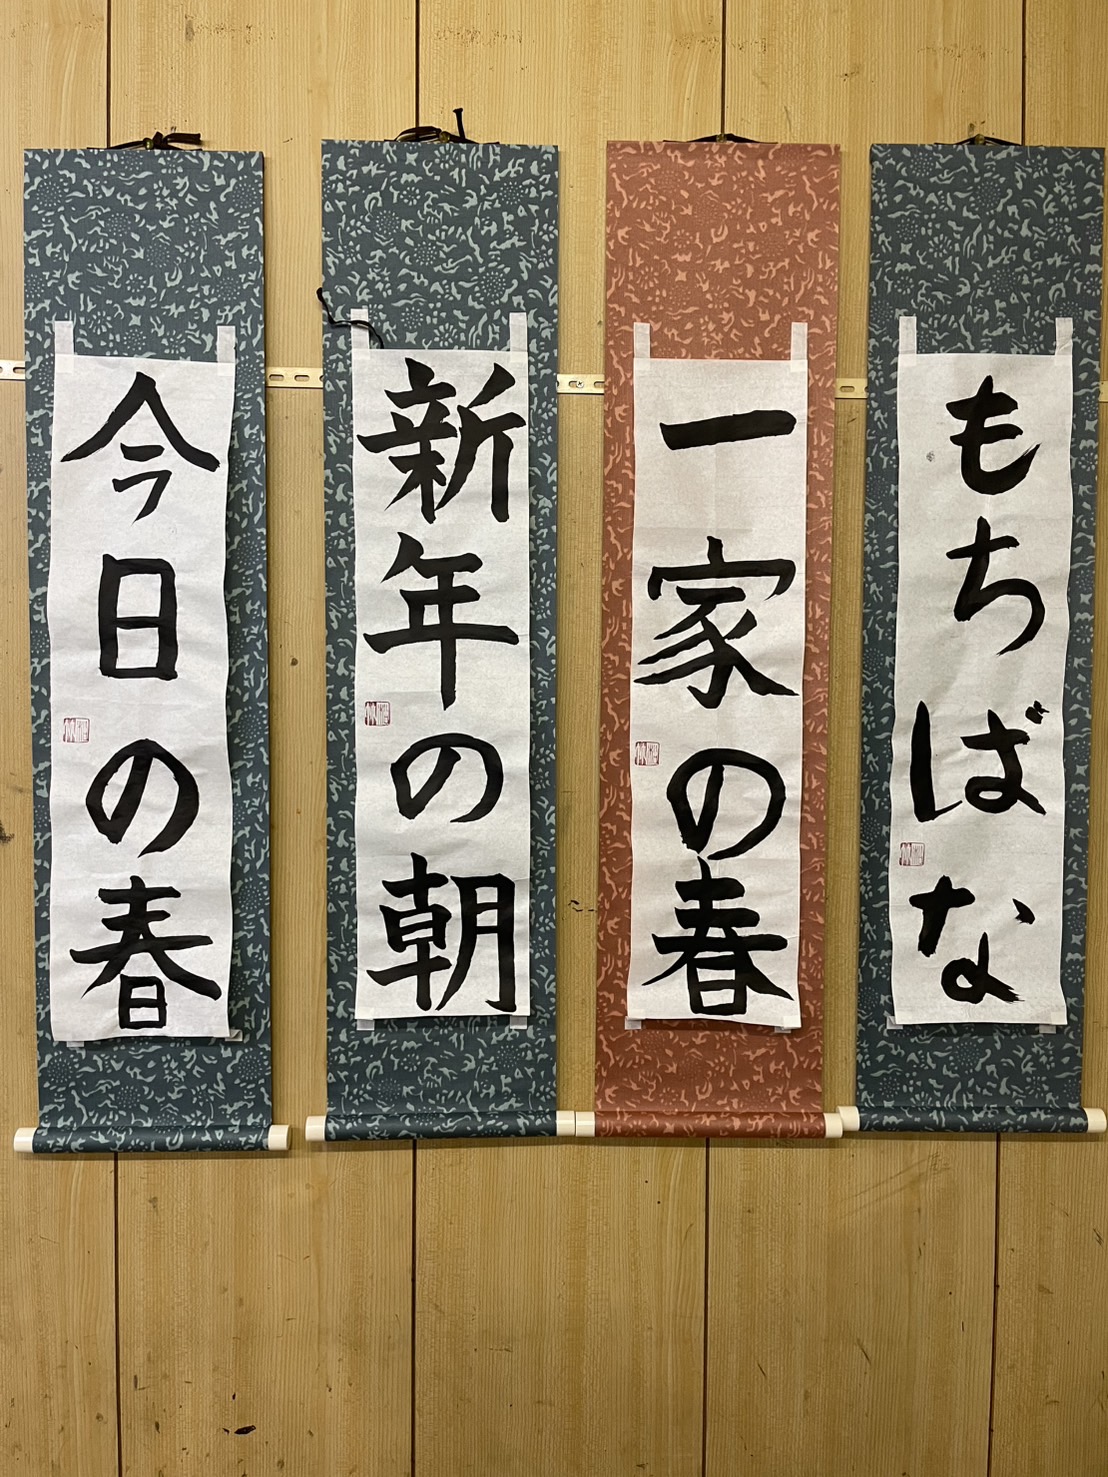 もちばな
一家の春
新年の朝
今日の春